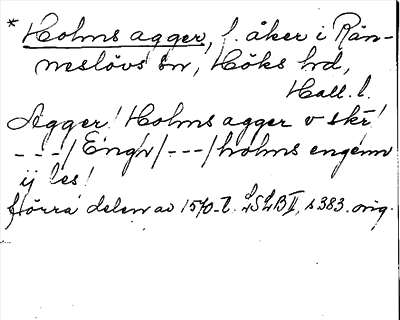 * Holms agger, f. åker i Rän-
neslövs sn, Höks hd,
Hall. l.
Agger! Holms agger v skr!
---/Engh/---/holms engenn
ij les!
förra delen av 1570-t. LSLB II, s 383. orig.